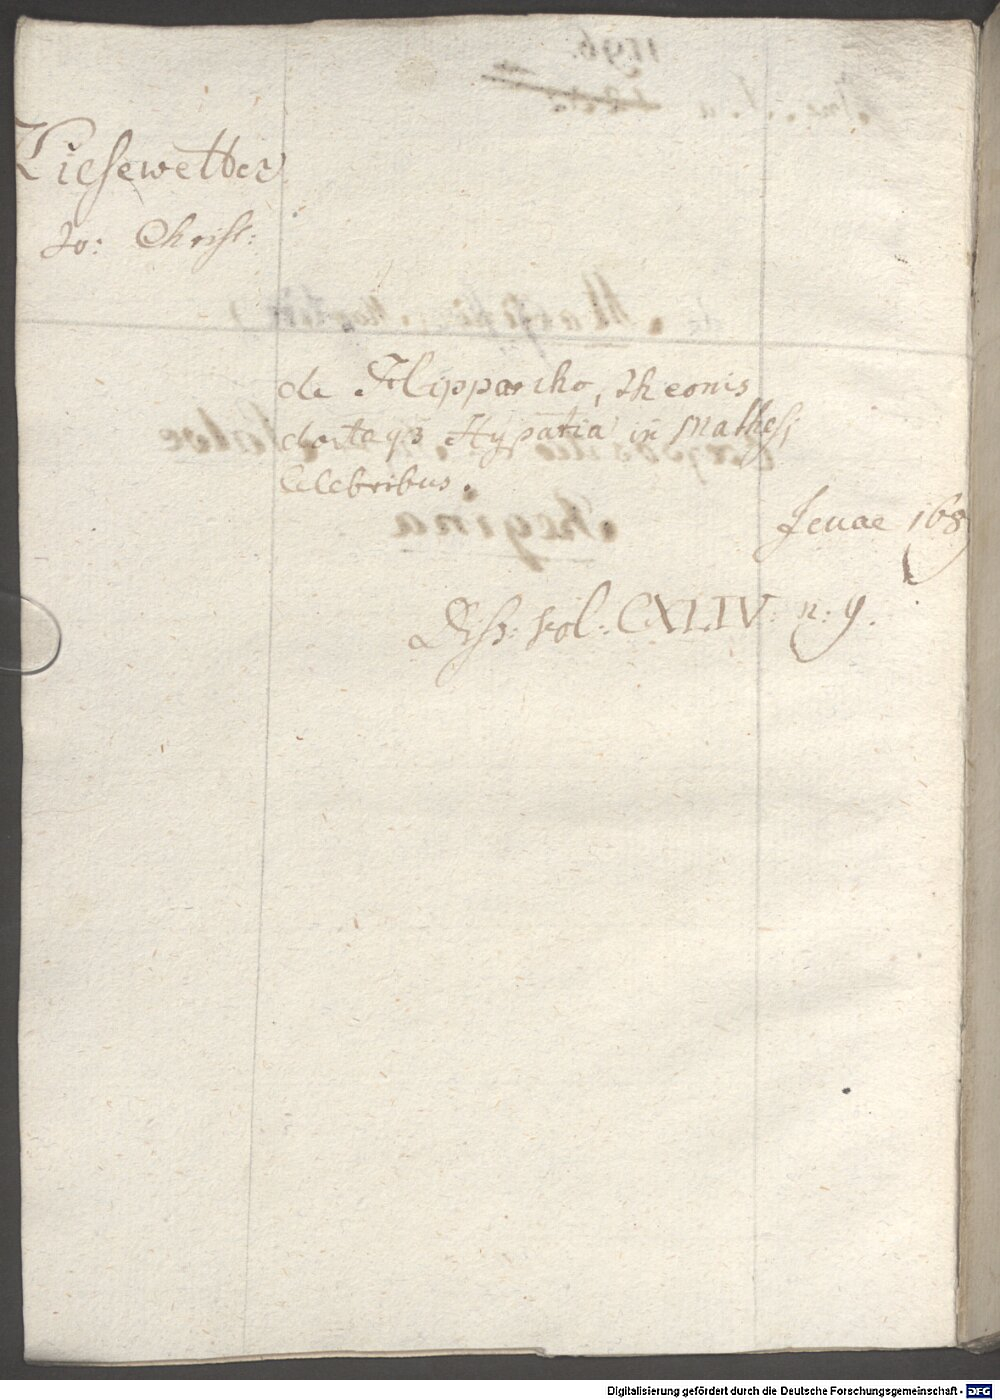 Kiesewetter
Jo: Christ:
de Hippancho, Theonis
doctaq3 Hypatia in Mathesi
Celebribus.
Jenae 1689
Diss: vol: CXLIV: n: 9.
Digitalisierung gefördert durch die Deutsche Forschungsgemeinschaft - DFG